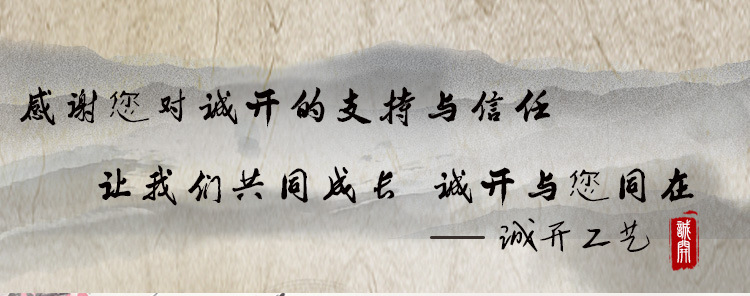 感谢您对诚开的支持与信任
让我们共同成长 诚开与您同在
——诚开工艺
誠開